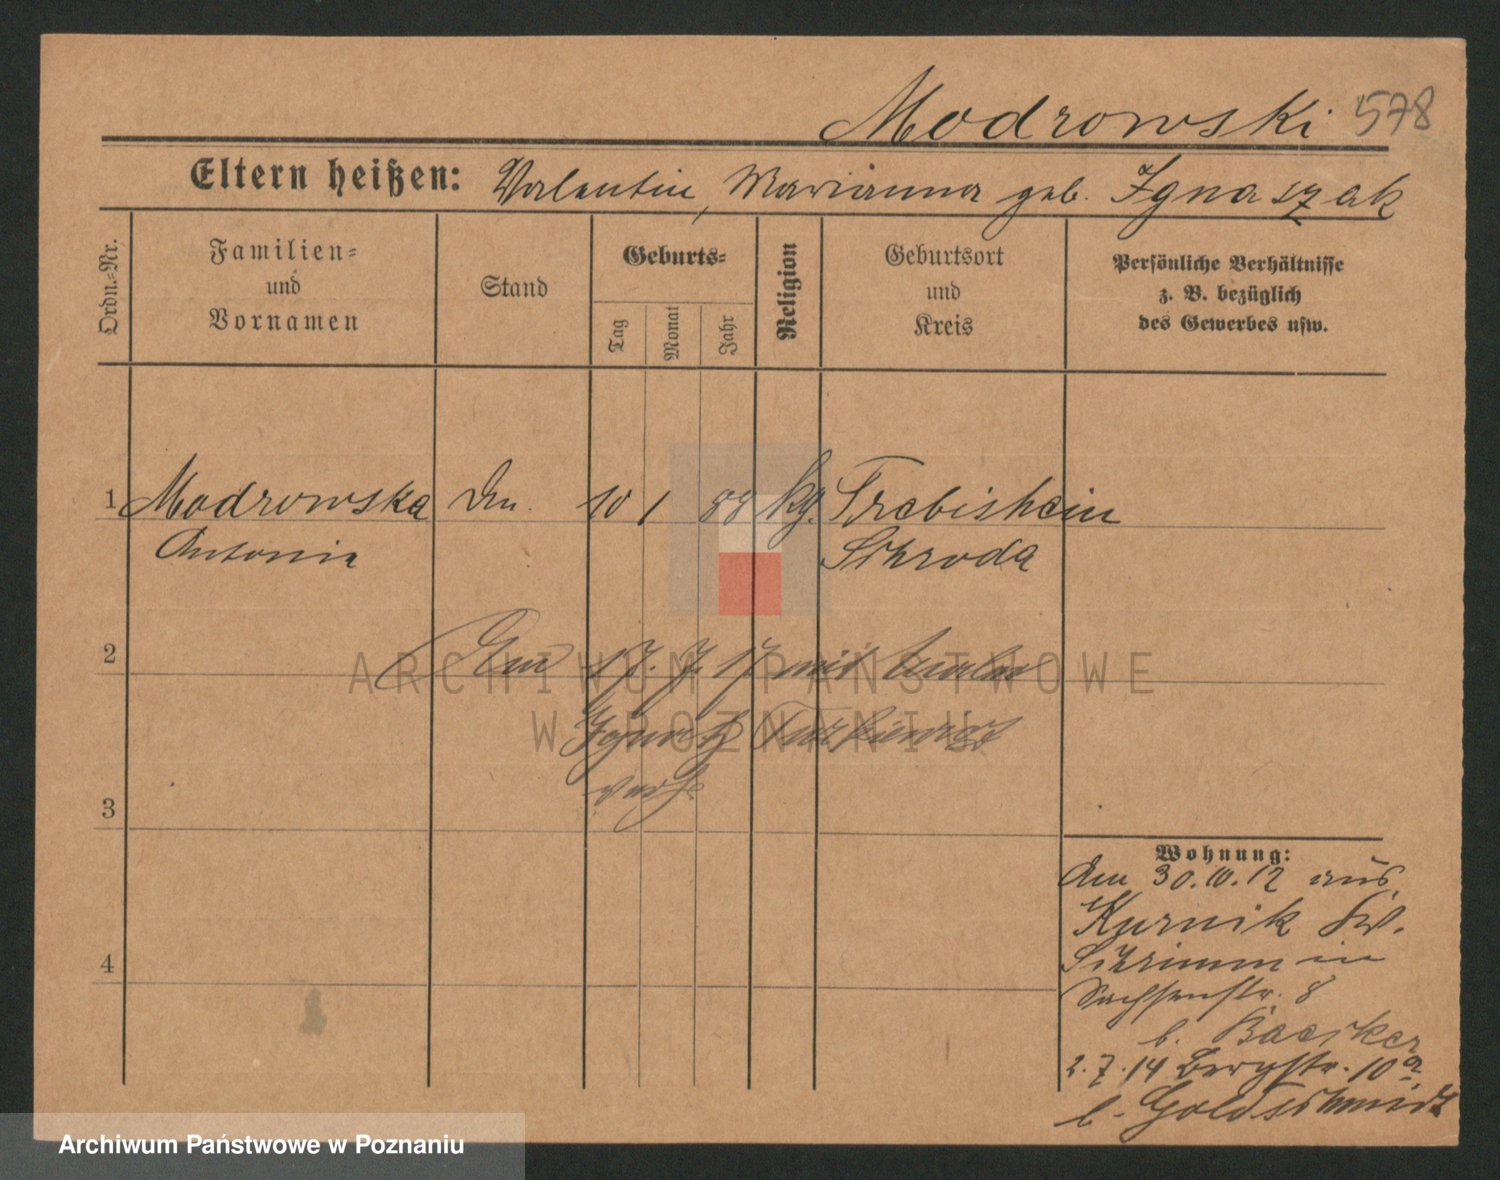 Modrowski 578
Eltern heißen: Valentin, Marianna geb. Ignaszak
Ordn.-Nr.
Familien-
und
Vornamen
Stand
Geburts-
Tag
Monat
Jahr
Religion
Geburtsort
und
Kreis
Persönliche Verhältnisse
z. B. bezüglich
des Gewerbes usw.
1 Modrowska 10 1 88 kg. Trebisheim
Antonia Schroda
2 Am 17. 7. 17 mit
verh.
3
4
Wohnung:
Am 30.10.12 aus
Kurnik Kr.
Schrimm in
Sachsenstr. 8
b. Baesker
2.7.14 Bergstr. 10a
b. Goldschmidt
ARCHIWUM PAŃSTWOWE
W POZNANIU
Archiwum Państwowe w Poznaniu